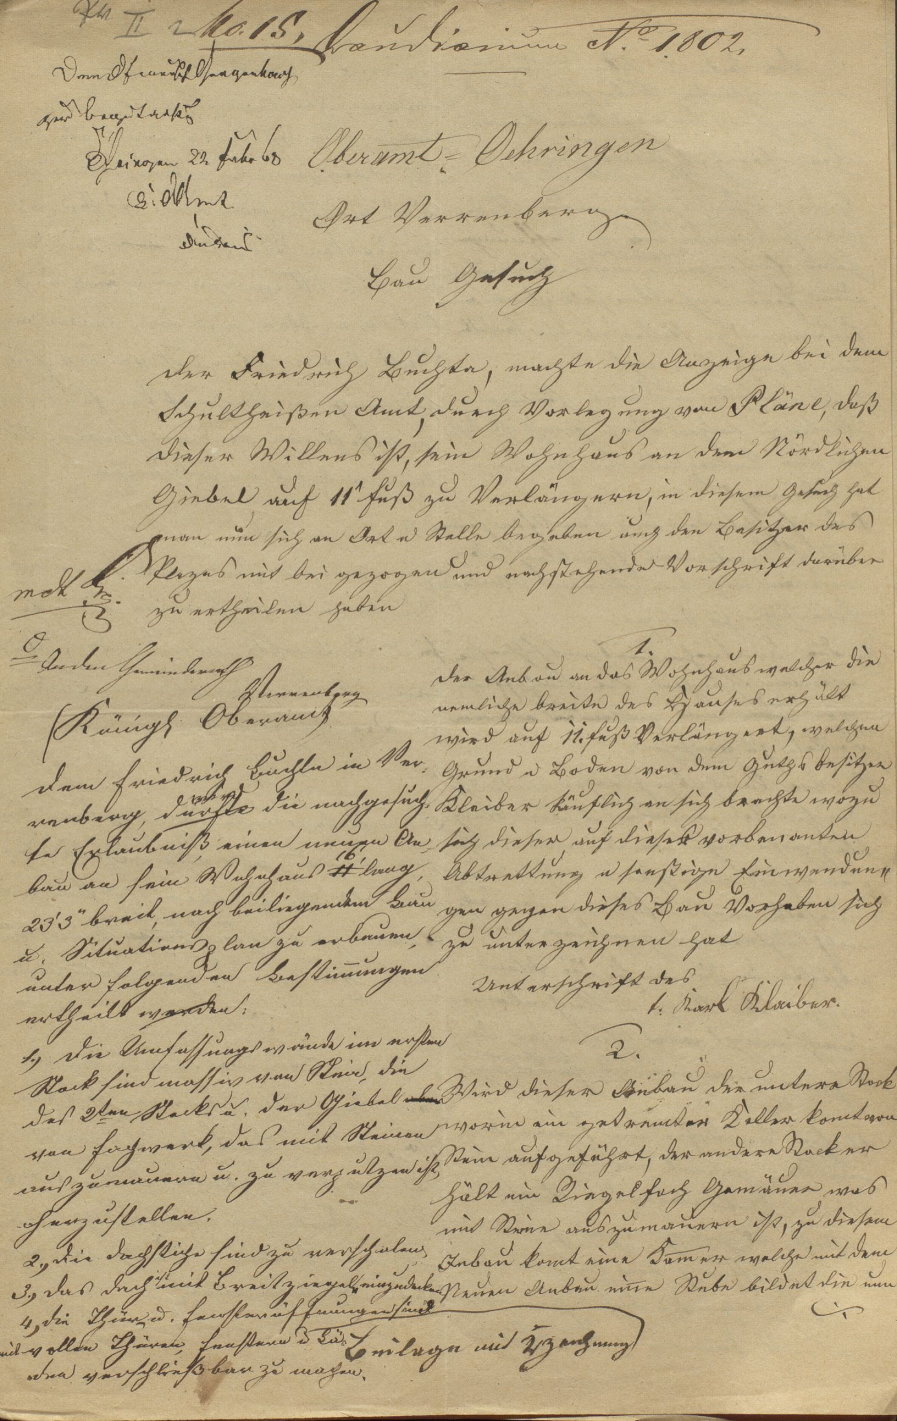 II No. 15. Laudirium No. 1802.
Dem
zur Begutachtg
22. Febr 68
Oberamt-Oehringen
Ort Verrenberg.
Bau Gesuch
Der Friedrich Buchta, machte die Anzeige bei dem
Schultheißen Amt, durch Vorlegung von Pläne, daß
dieser Willens ist, sein Wohnhaus an dem Nördlichen
Giebel auf 11' Fuß zu Verlängern, in diesem Gesuch hat
man nun sich an Ort u Stelle begeben auch den Besitzer des
Plazes mit bei gezogen und nachstehende Vorschrift darüber
zu ertheilen haben
An den Gemeinderath
Verrenberg
Königl. Oberamt
Dem Friedrich Buchta in Ver-
renberg, durfte die nachgesuch-
te Erlaubniß, einen neuen An
bau an sein Wohnhaus 16' lang,
23'3" breit, nach beiliegendem Bau
u. Situationsplan zu erbauen,
unter folgenden Bestimmungen
ertheilt werden:
1., Die Umfassungswände im ersten
Stock sind massiv von Stein, die
des 2ten Stocks u. der Giebel
von Fachwerk, das mit Steinen
auszumauern u. zu verputzen ist,
herzustellen.
2., Die Dachstiche sind zu verschalen,
3., Das Dach mit Breitziegel einzudecken
4., Die Thür- u. Fensteröffnungen sind
mit vollen Thüren, Fenstern u Lä-
den verschließbar zu machen.
1.
Der Anbau an das Wohnhaus welcher die
nemliche breite des Hauses erhält
wird auf 11. Fuß Verlängert, welchen
Grund u Boden von dem Guths besitzer
Kleiber käuflich an sich brachte wozu
sich dieser auf dieses vorbenanten
Abtrettung u sonstige Einwendun-
gen gegen dieses Bau Vorhaben sich
zu unterzeichnen hat
Unterschrift des
t. Karl Klaiber.
2.
Wird dieser Anbau der untere Stock
worin ein getremter Keller komt von
Stein aufgeführt, der andere Stock er
hält ein Riegelfach Gemäuer was
mit Steine auszumauern ist, zu diesem
Anbau komt eine Kamer welche mit dem
Neuen Anbau eine Stube bildet die nun
Beilage mit Zeichnung